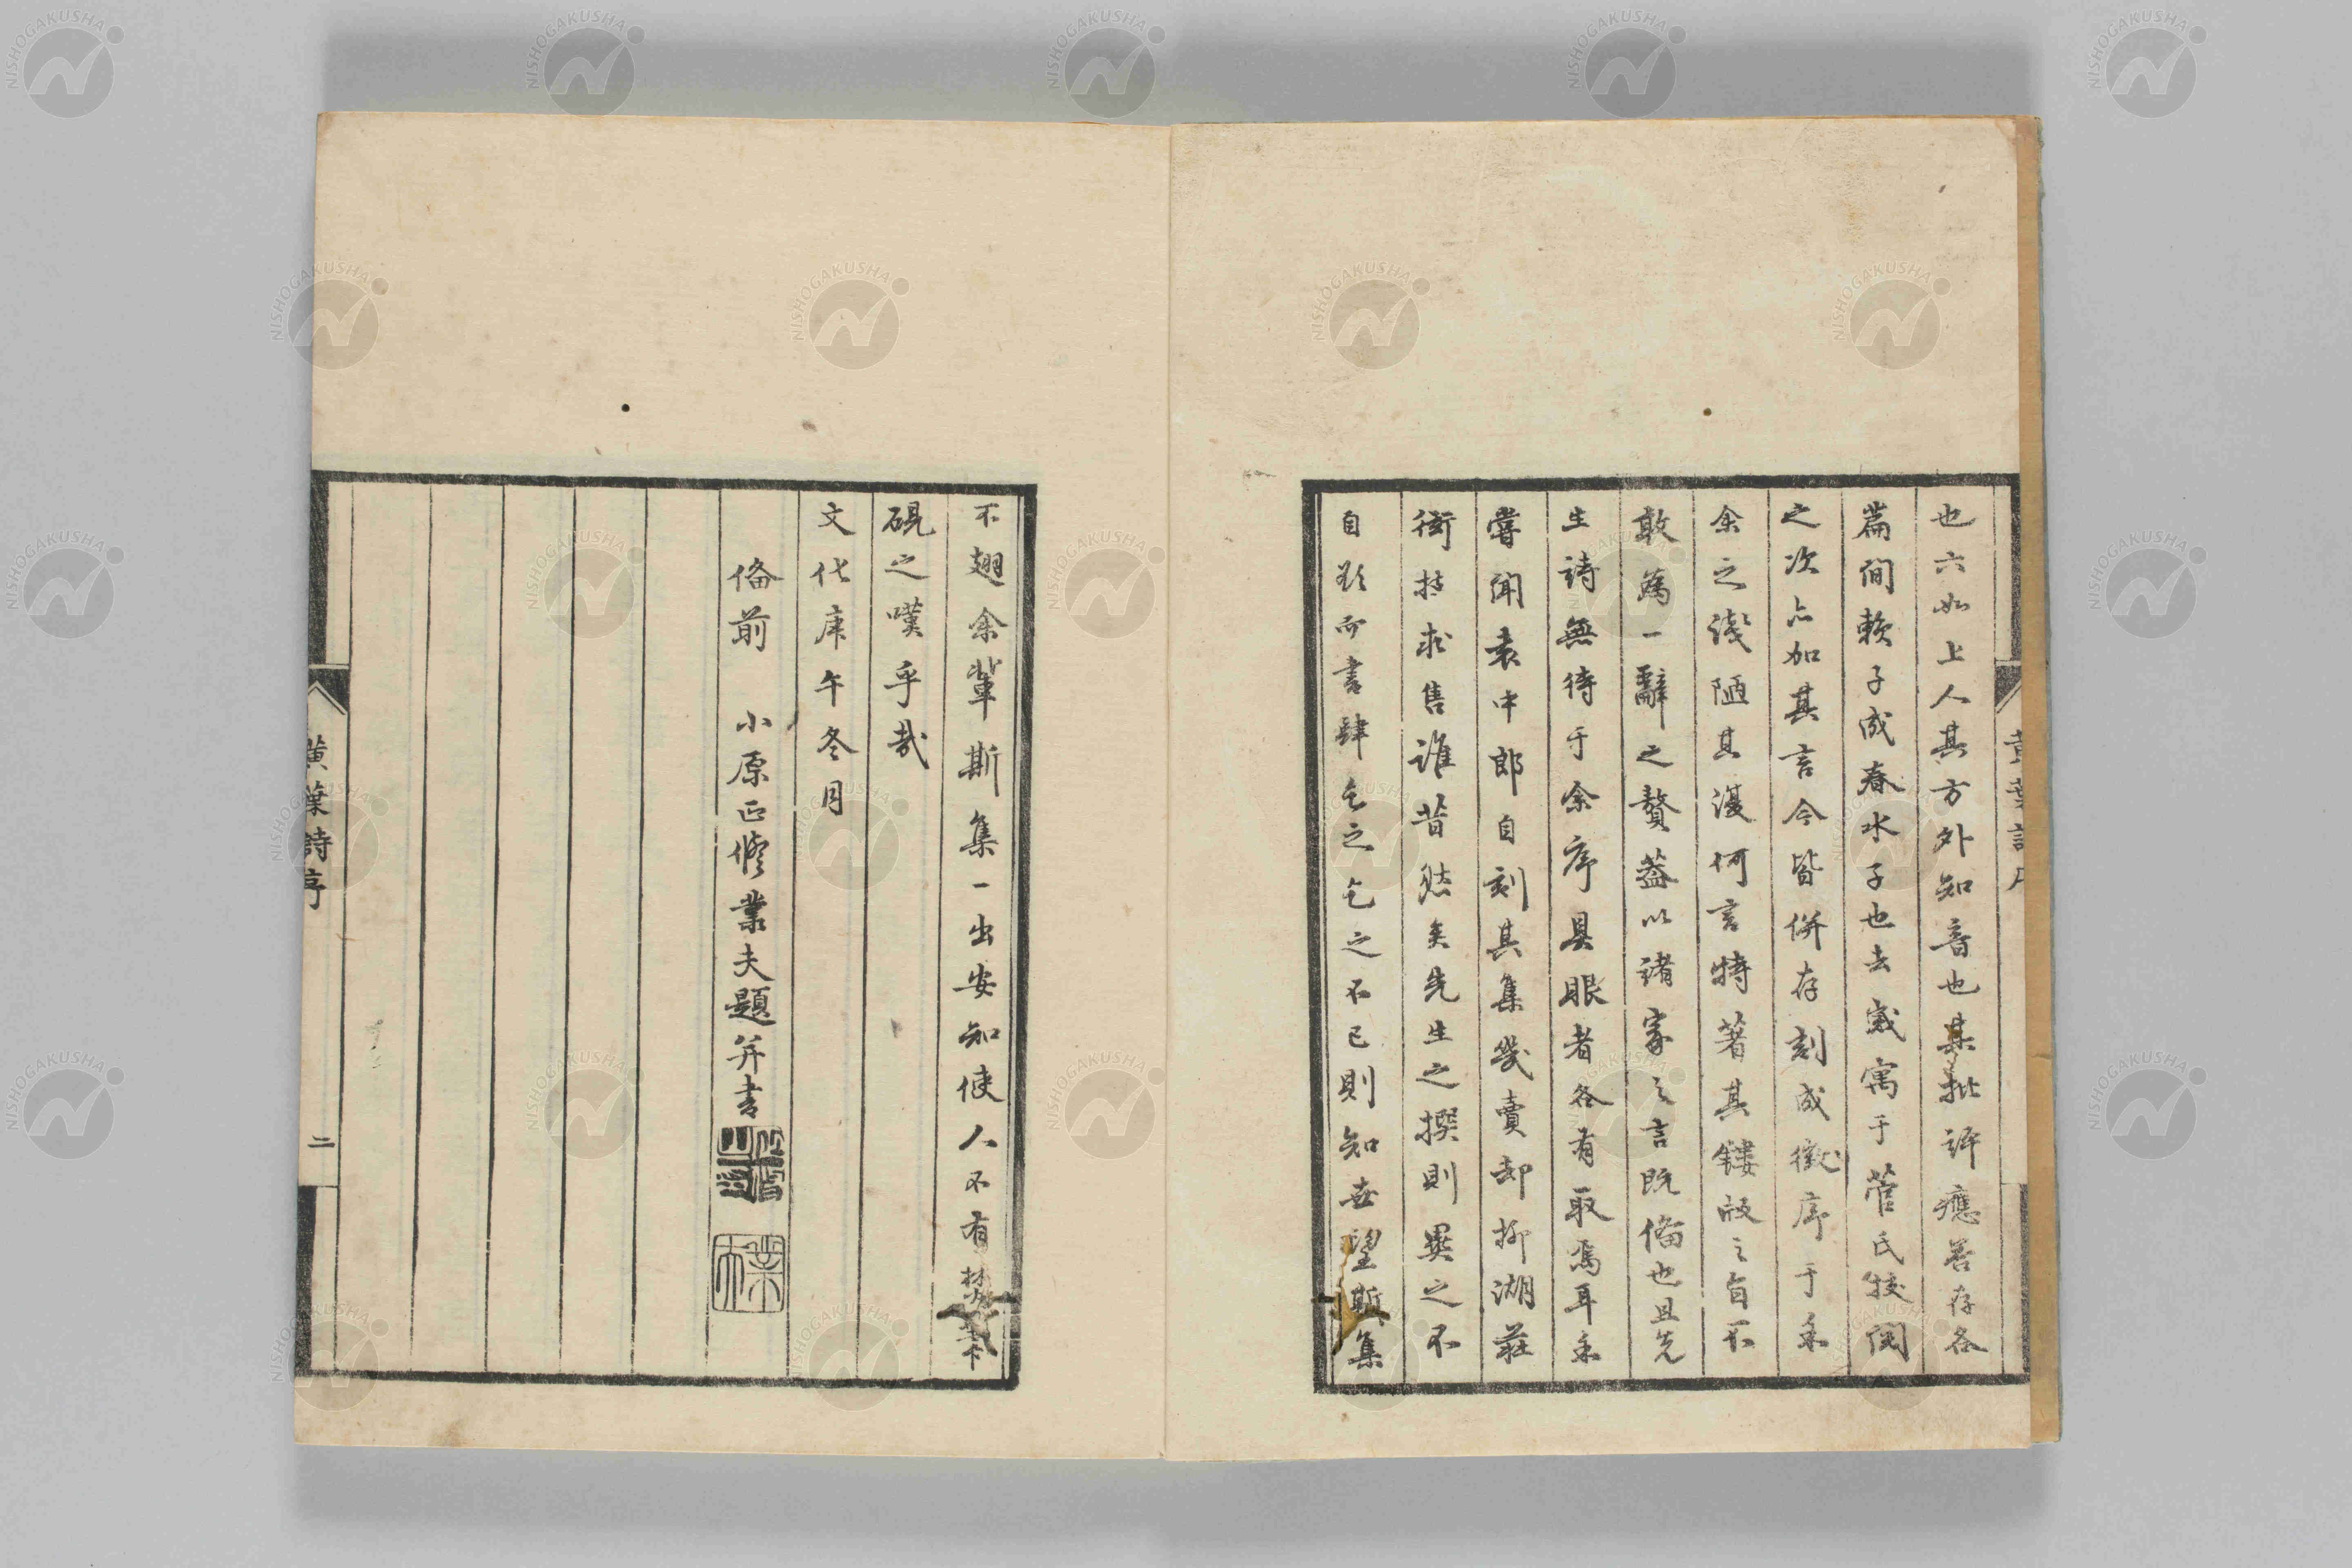 也六如上人其方外知音也某批評應善存各
篇間賴子成春水子也去歲寓于菅氏校閲
之次亦加其言今皆併存刻成徵序于余
余之淺陋其漫何言特著其鏤版之旨不
敢為一辭之贅蓋以諸家之言既備也且先
生詩無待于余序具眼者各有取焉耳余
嘗聞袁中郎自刻其集幾賣却柳湖莊
衒技求售誰昔然矣先生之撰則異之不
自欲而書肆乞之乞之不已則知世望斯集
不翅余輩斯集一出安知使人不有焚筆
硯之嘆乎哉
文化庚午冬月
備前 小原正修業夫題并書
黃葉詩序
二
黃葉詩序
NISHOGAKUSHA